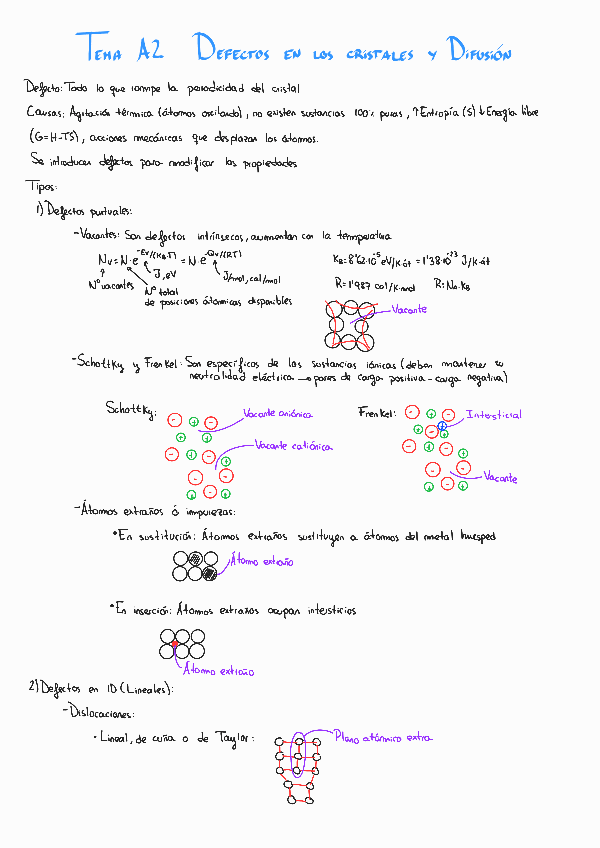 TEMA A2 DEFECTOS EN LOS CRISTALES Y DIFUSIÓN
Defecto: Todo lo que rompe la periodicidad del cristal
Causas: Agitación térmica (átomos oscilando), no existen sustancias 100% puras, ↑Entropía (S) ↓Energía libre
(G=H-TS), acciones mecánicas que desplazan los átomos.
Se introducen defectos para modificar las propiedades
Tipos:
1) Defectos puntuales:
-Vacantes: Son defectos intrínsecos, aumentan con la temperatura
Nv=N·e^-Ev/(KB·T) = N·e^-Qv/(RT)
KB=8'62·10^-5 eV/K·át = 1'38·10^-23 J/K·át
J, eV
J/mol, cal/mol
Nº vacantes
Nº total
de posiciones atómicas disponibles
R=1'987 cal/K·mol R=NA·KB
Vacante
-Schottky y Frenkel: Son específicos de las sustancias iónicas (deben mantener su
neutralidad eléctrica → pares de carga positiva - carga negativa)
Schottky:
Vacante aniónica
Vacante catiónica
Frenkel:
Intersticial
Vacante
-Átomos extraños ó impurezas:
•En sustitución: Átomos extraños sustituyen a átomos del metal huésped
Átomo extraño
•En inserción: Átomos extraños ocupan intersticios
Átomo extraño
2) Defectos en 1D (Lineales):
-Dislocaciones:
·Lineal, de cuña o de Taylor:
Plano atómico extra